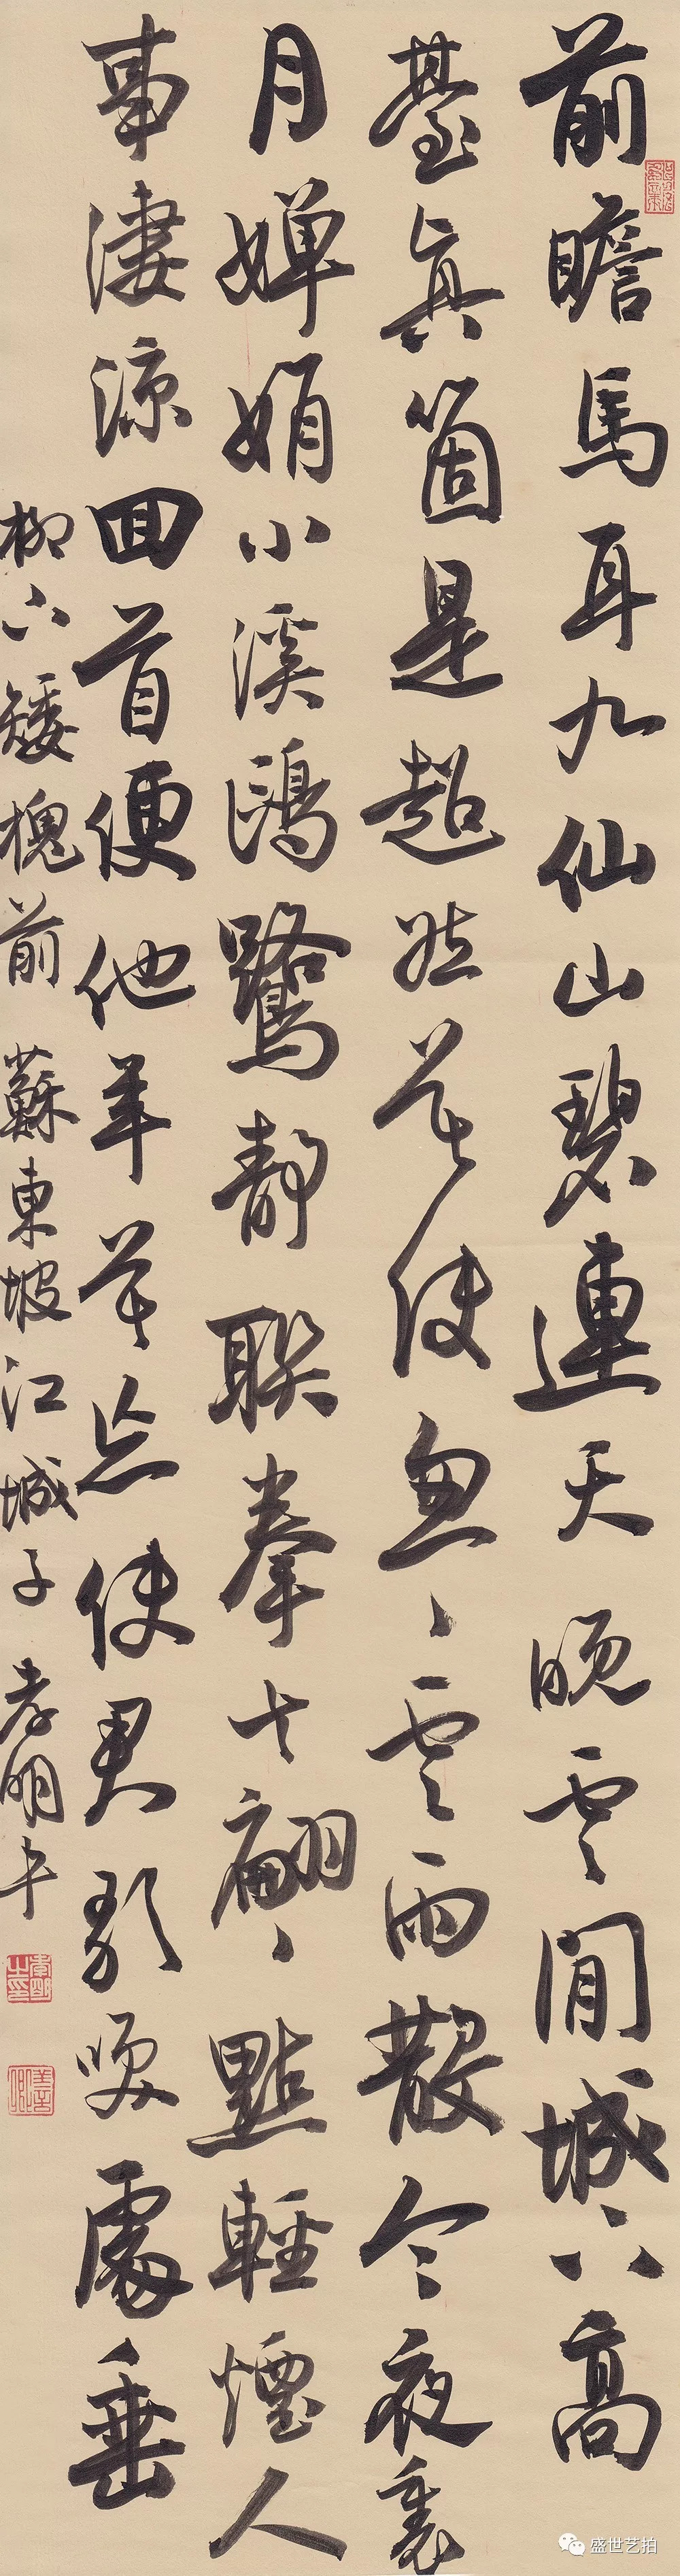 前瞻馬耳九仙山碧連天晚雲間城上高
臺真箇是超然莫使怱〻雲雨散今夜裏
月嬋娟小溪鷗鷺靜聯拳去翩〻點輕煙人
事淒涼回首便他年莫忘使君歌咲處垂
柳下矮槐前 蘇東坡江城子
盛世艺拍